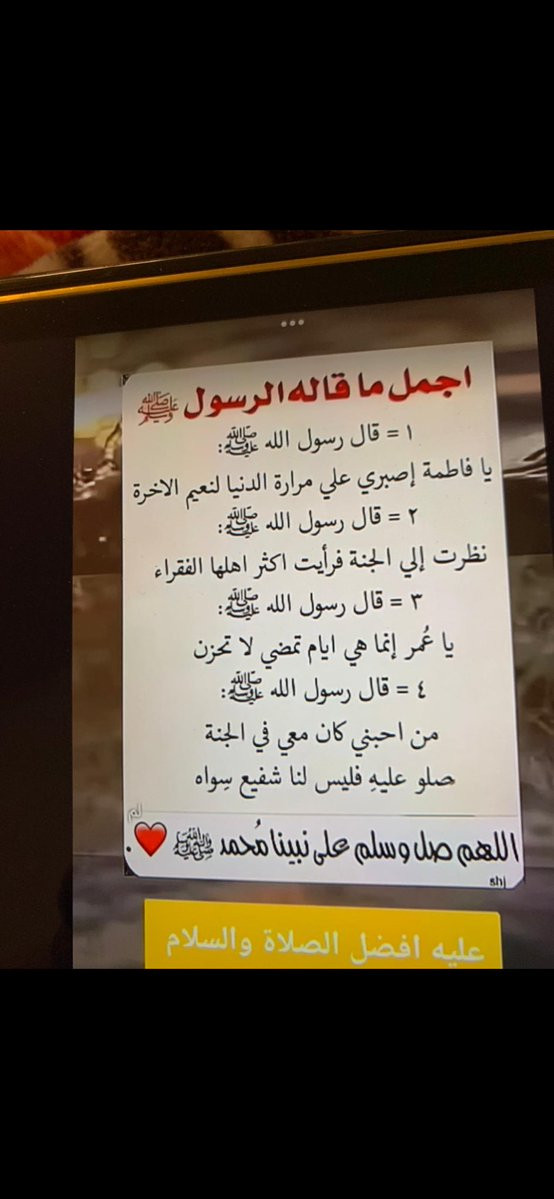 اجمل ما قاله الرسول ﷺ
١ = قال رسول الله ﷺ:
يا فاطمة إصبري علي مرارة الدنيا لنعيم الاخرة
٢ = قال رسول الله ﷺ:
نظرت إلي الجنة فرأيت اكثر اهلها الفقراء
٣ = قال رسول الله ﷺ:
يا عُمر إنما هي ايام تمضي لا تحزن
٤ = قال رسول الله ﷺ:
من احبني كان معي في الجنة
صلو عليهِ فليس لنا شفيع سِواه
اللهم صل وسلم على نبينا مُحمد ﷺ ❤️.
shj
عليه افضل الصلاة والسلام